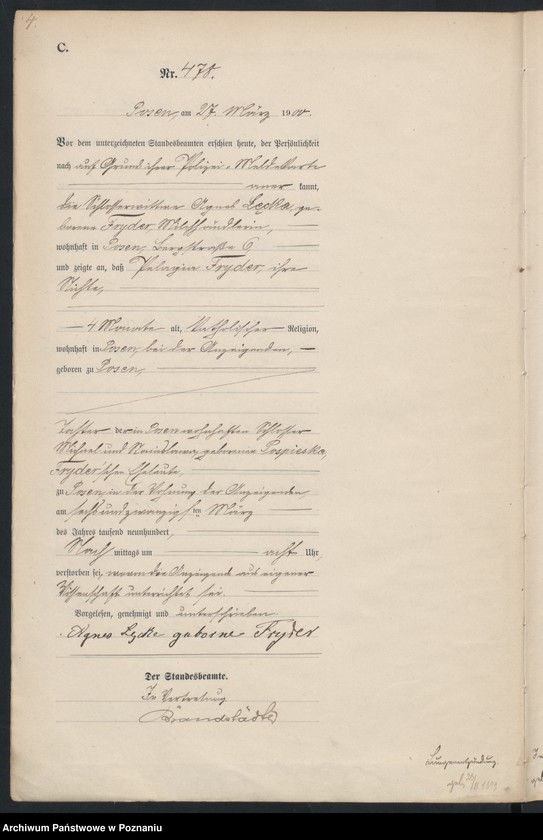 4.
C.
Nr. 478.
Posen, am 27. März 1900.
Vor dem unterzeichneten Standesbeamten erschien heute, der Persönlichkeit
nach auf Grund ihrer Polizei-Meldekarte
aner kannt,
die Schlosserwittwe Agnes Lęcka, ge-
borene Fryder, Milchhändlerin,
wohnhaft in Posen, Bergstraße 6
und zeigte an, daß Pelagia Fryder, ihre
Nichte,
4 Monate alt, katholischer Religion,
wohnhaft in Posen, bei der Anzeigenden,
geboren zu Posen,
Tochter der in Posen wohnhaften Schlosser
Michael und Stanislawa geborenen Pospieska,
Fryder'schen Eheleute,
zu Posen, in der Wohnung der Anzeigenden,
am sechsundzwanzigsten März
des Jahres tausend neunhundert,
Nach mittags um acht Uhr,
verstorben sei, wovon die Anzeigende aus eigener
Wissenschaft unterrichtet sei.
Vorgelesen, genehmigt und unterschrieben
Agnes Lęcke geborne Fryder
Der Standesbeamte.
In Vertretung
Brandstädter
Lungenentzündung.
geb.
Archiwum Państwowe w Poznaniu